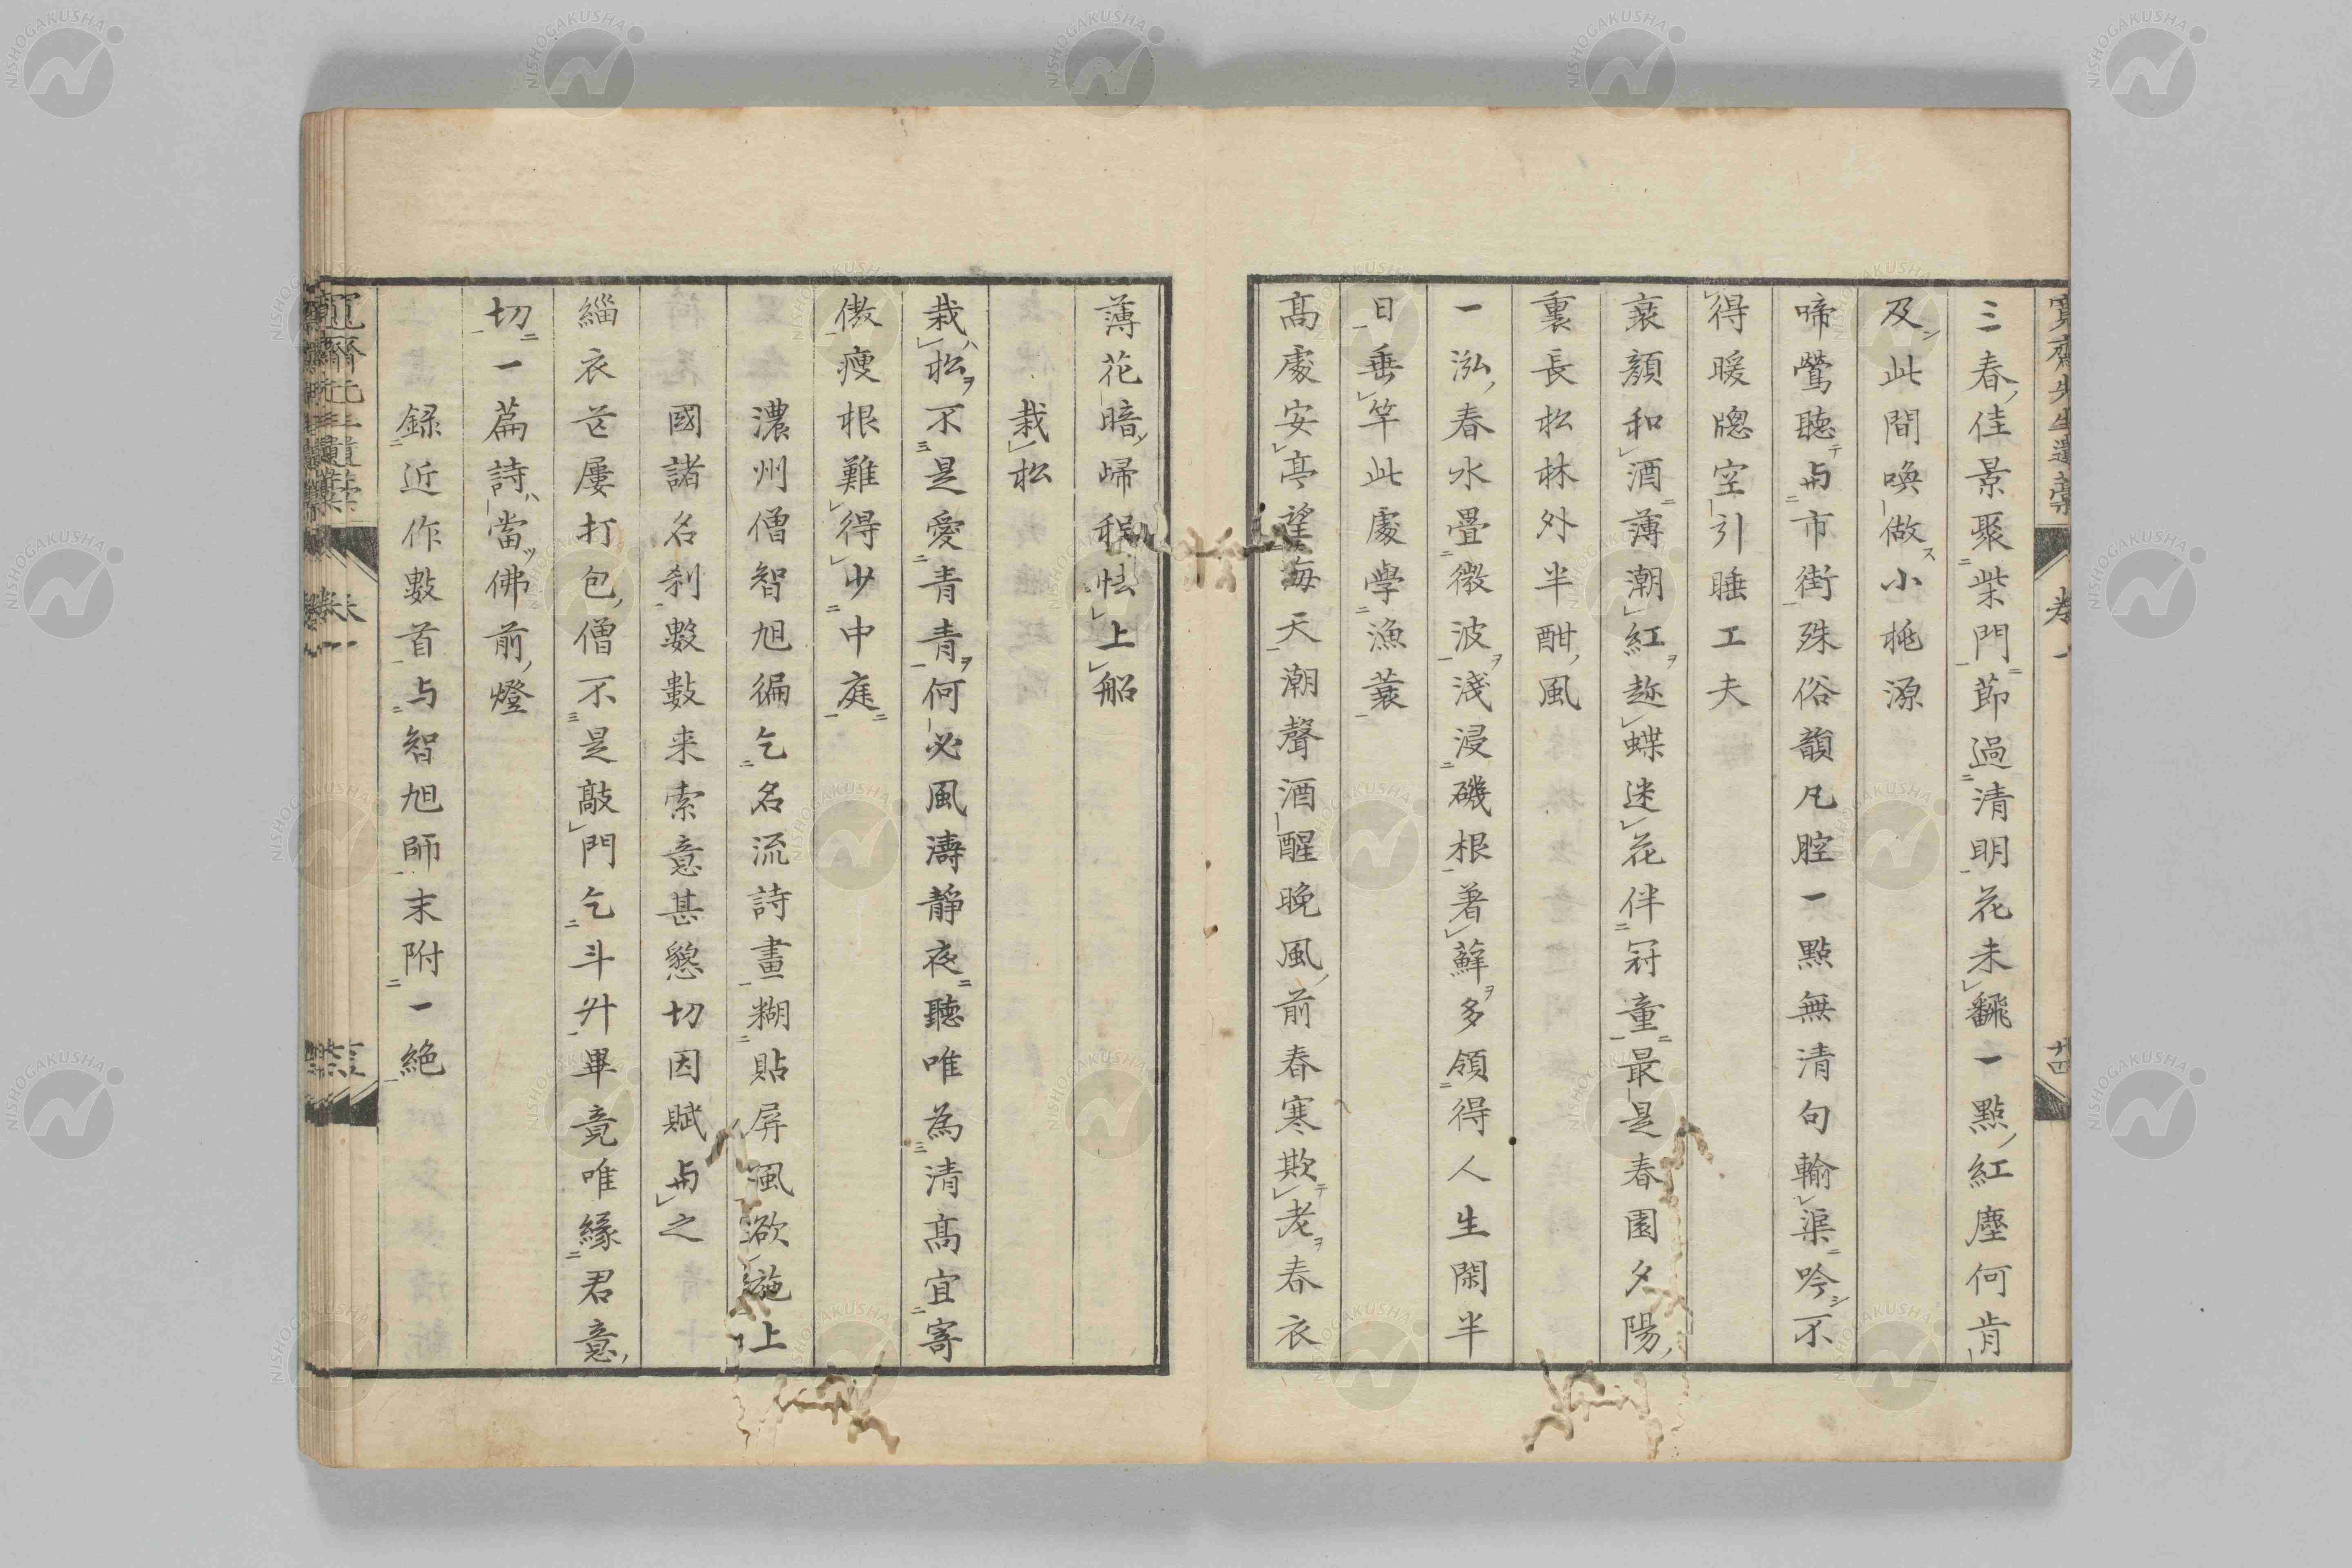 三春佳景聚柴門節過清明花未飜一點紅塵何肯
及此間喚做小桃源
啼鶯聽与市街殊俗韻凡腔一點無清句輸渠吟不
得暖窓空引睡工夫
衰顔和酒薄潮紅趂蝶迷花伴冠童最是春園夕陽
裏長松林外半酣風
一泓春水疊微波淺浸磯根著蘚多領得人生閑半
日垂竿此處學漁蓑
高處安亭望海天潮聲酒醒晩風前春寒欺老春衣
薄花暗歸程怯上船
栽松
栽松不是愛青青何必風濤静夜聽唯為清高宜寄
傲瘦根難得少中庭
濃州僧智旭徧乞名流詩畫糊貼屏風欲施上
國諸名刹數數来索意甚懇切因賦与之
緇衣芒屢打包僧不是敲門乞斗升畢竟唯緣君意
切一篇詩當佛前燈
録近作數首与智旭師末附一絶
卷一
廿四
NISHOGAKUSHA